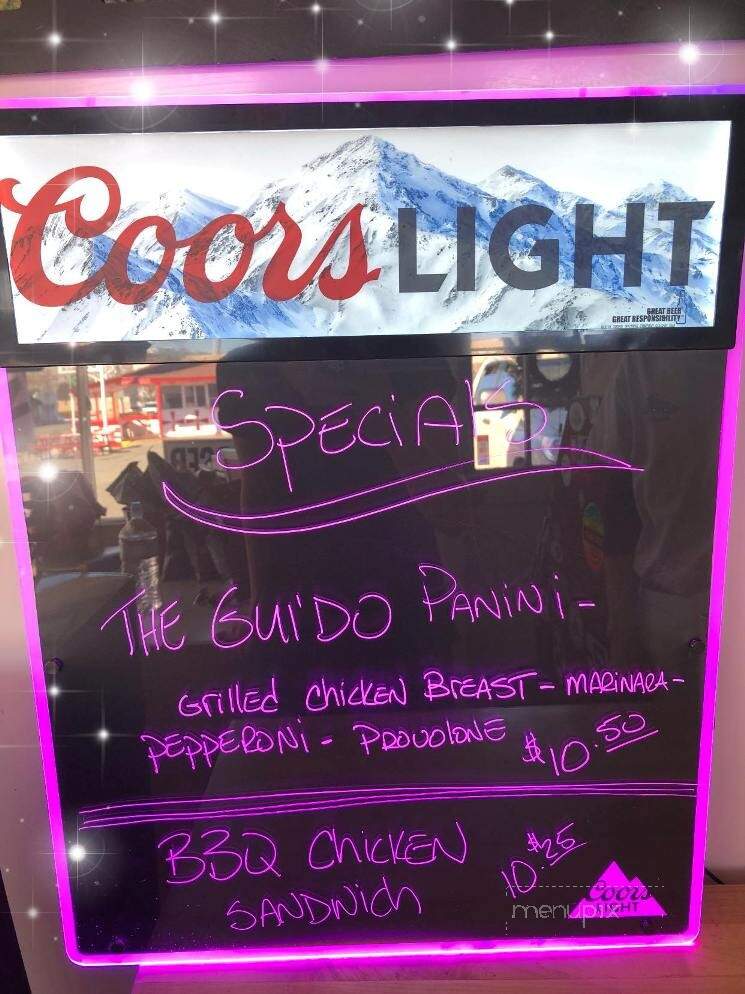 Coors LIGHT
GREAT BEER
GREAT RESPONSIBILITY
SPECiAlS
THE GUi'DO PANiNi -
Grilled chicken BrEAST - MARINARA -
PEPPERONi - PROVOLONE $10.50
BBQ ChicKEN
SANDWich
10.$25
Coors
LIGHT
menupix